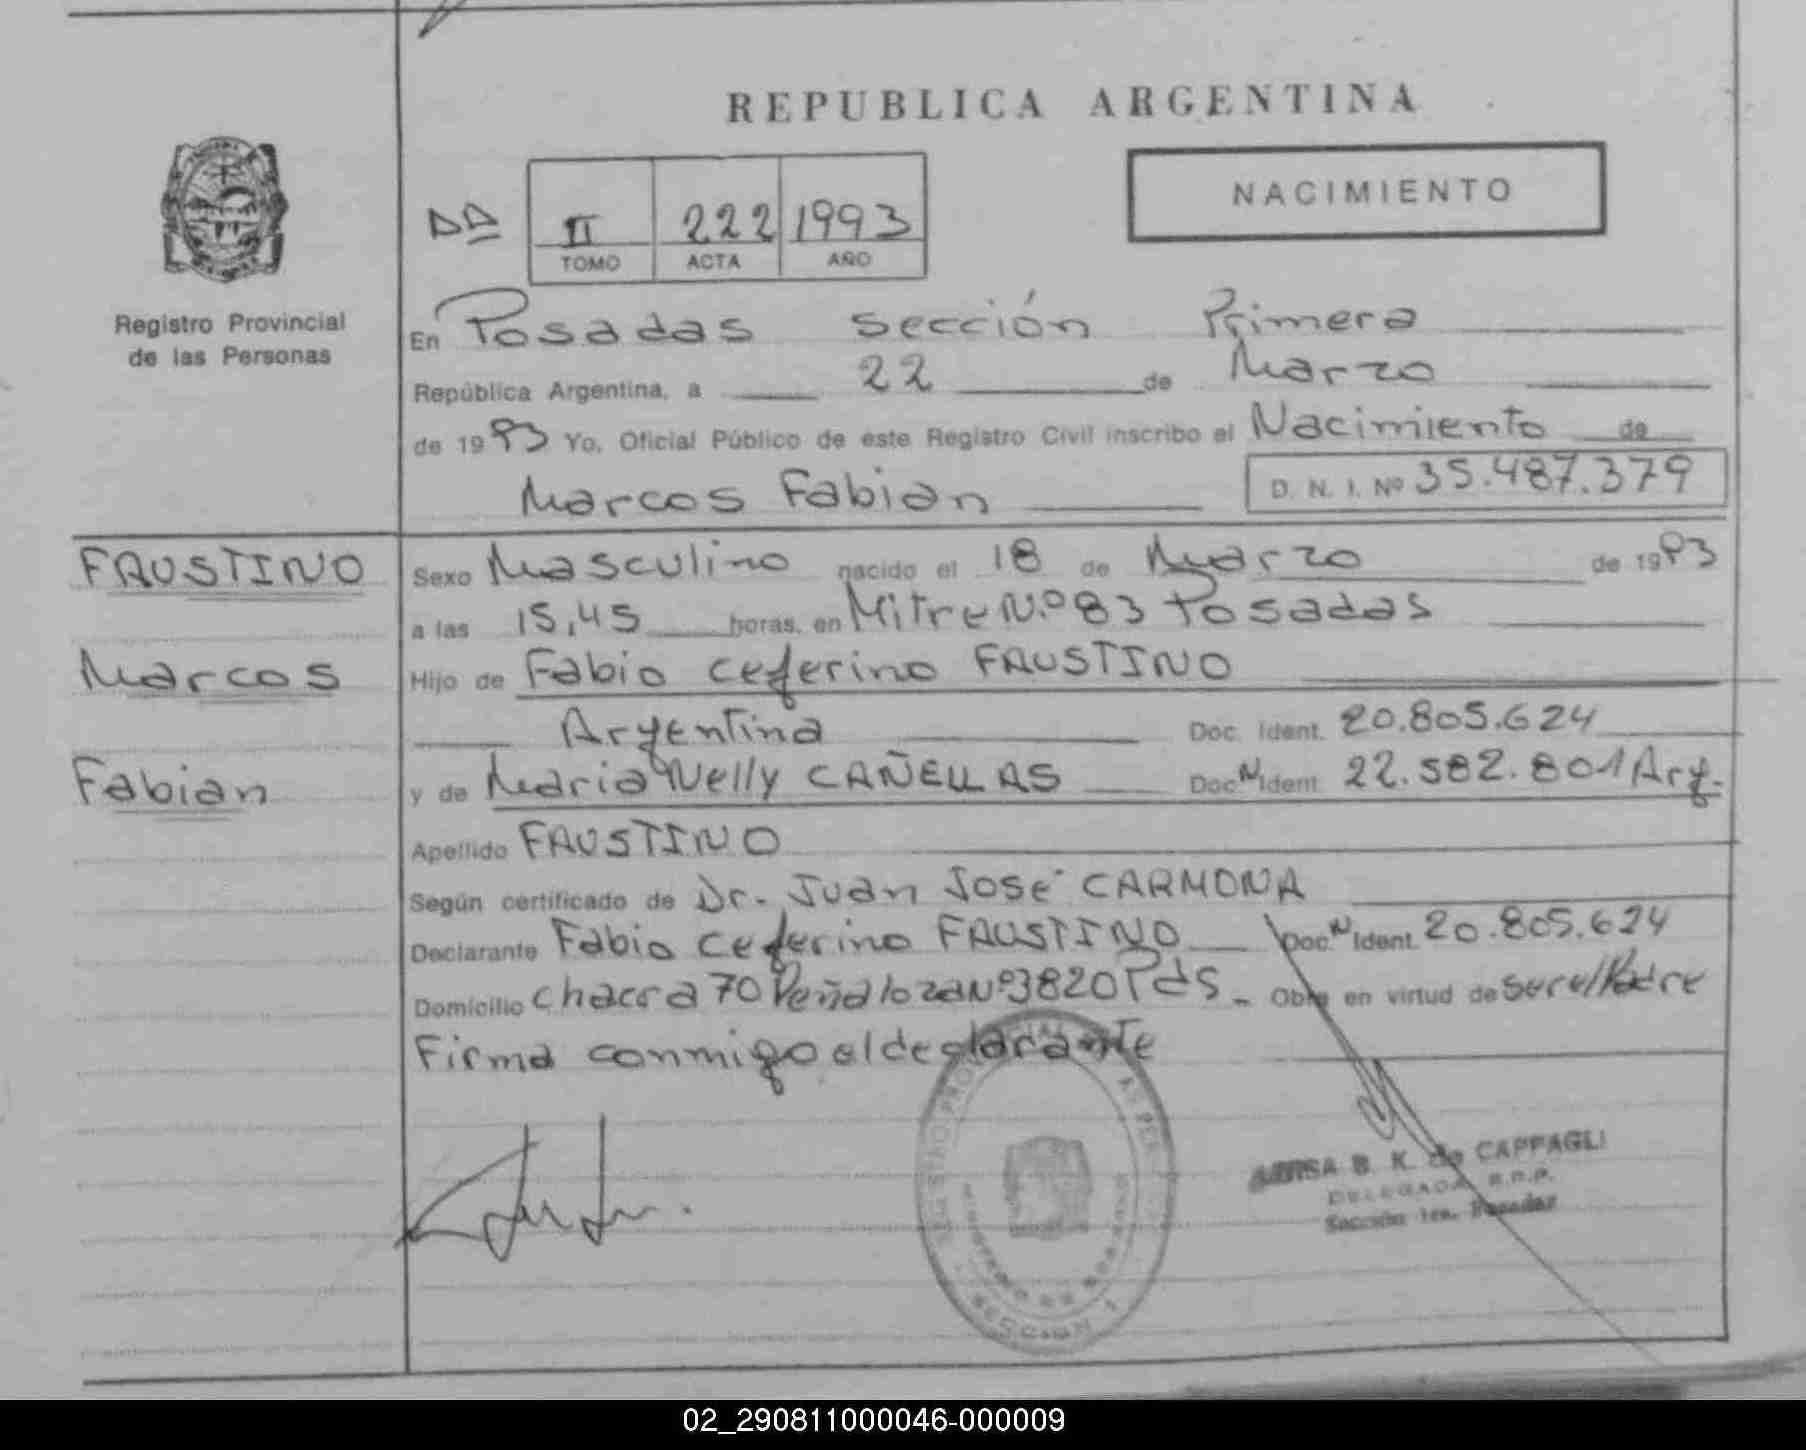 REPUBLICA ARGENTINA
NACIMIENTO
II 222 1993
TOMO ACTA AÑO
Registro Provincial
de las Personas
En Posadas Sección Primera
República Argentina, a 22 de Marzo
de 1993 Yo, Oficial Público de este Registro Civil inscribo el Nacimiento de
Marcos Fabian D. N. I. Nº 35.487.379
FAUSTINO
Marcos
Fabian
Sexo Masculino nacido el 18 de Marzo de 1993
a las 15,45 horas, en Mitre N.º 83 Posadas
Hijo de Fabio Ceferino FAUSTINO
Argentina Doc. Ident. 20.805.624
y de Maria Nelly CAÑELLAS Doc. N Ident. 22.582.801 Arg.
Apellido FAUSTINO
Según certificado de Dr. Juan José CARMONA
Declarante Fabio Ceferino FAUSTINO Doc. N Ident. 20.805.624
Domicilio Chacra 70 Peñaloza Nº 3820 Pds - Obra en virtud de ser el Padre
Firma conmigo el declarante
B. K. de CAPPAGLI
DELEGADA R.P.P.
Sección 1ra. Posadas
SECCION 1
02_290811000046-000009